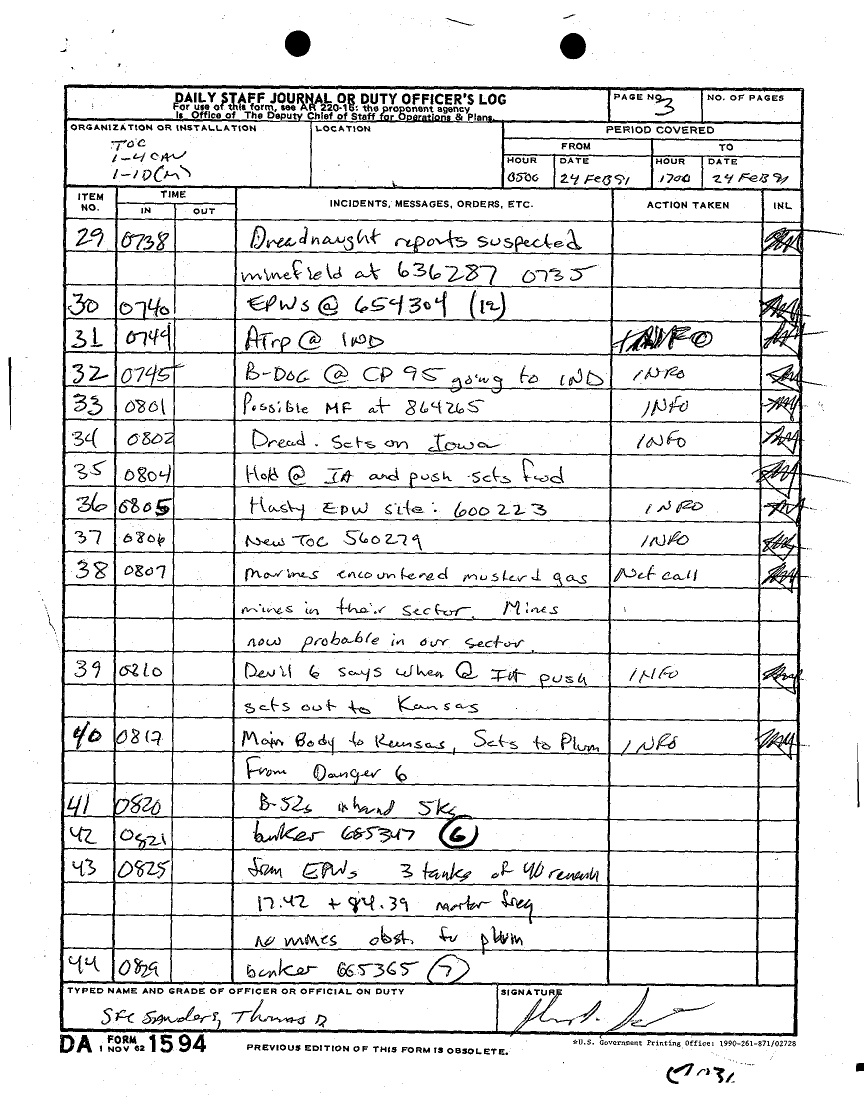 DAILY STAFF JOURNAL OR DUTY OFFICER'S LOG
For use of this form, see AR 220-15; the proponent agency
is Office of The Deputy Chief of Staff for Operations & Plans.
PAGE NO. 3
NO. OF PAGES
ORGANIZATION OR INSTALLATION
TOC
1-4 CAV
1-1D(M)
LOCATION
PERIOD COVERED
FROM TO
HOUR DATE HOUR DATE
0500 24 FEB 91 1700 24 FEB 91
ITEM NO. TIME IN OUT INCIDENTS, MESSAGES, ORDERS, ETC. ACTION TAKEN INL
29 0738 Dreadnaught reports suspected
minefield at 636287 0735
30 0740 EPWs @ 654304 (12)
31 0744 ATrp @ IND
32 0745 B-DOG @ CP 95 going to IND INFO
33 0801 Possible MF at 864265 INFO
34 0802 Dread. Scts on Iowa INFO
35 0804 Hold @ IA and push scts fwd
36 0805 Hasty EPW site: 600223 INFO
37 0806 New TOC 560279 INFO
38 0807 Marines encountered musterd gas Net call
mines in their sector. Mines
now probable in our sector.
39 0810 Devil 6 says when @ IA push INFO
scts out to Kansas
40 0817 Main Body to Kansas, Scts to Plum INFO
From Danger 6
41 0820 B-52s 5Ks
42 0821 bunker 685347 (6)
43 0825 from EPWs 3 tanks of 40 remain
17.42 + 84.39 mortar freq
no mines obst. to plum
44 0829 bunker 665365 (7)
TYPED NAME AND GRADE OF OFFICER OR OFFICIAL ON DUTY
SFC Sanders, Thomas D
SIGNATURE
DA FORM 1 NOV 62 1594
PREVIOUS EDITION OF THIS FORM IS OBSOLETE.
*U.S. Government Printing Office: 1990-261-871/02728